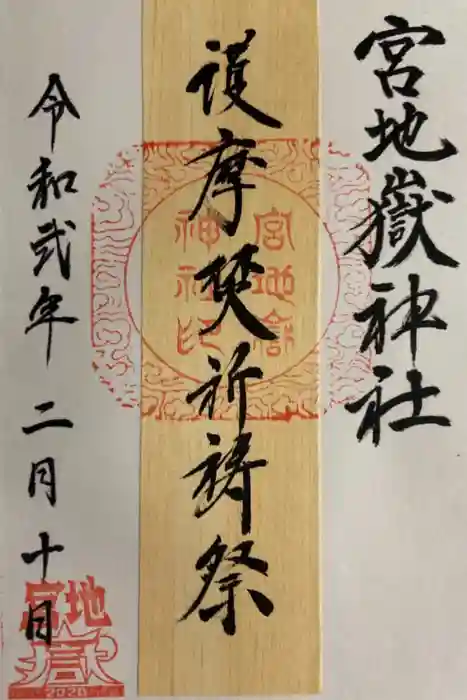 宮地嶽神社
護摩焚祈祷祭
宮地嶽
神社印
令和弐年二月十日
宮地
嶽
2020